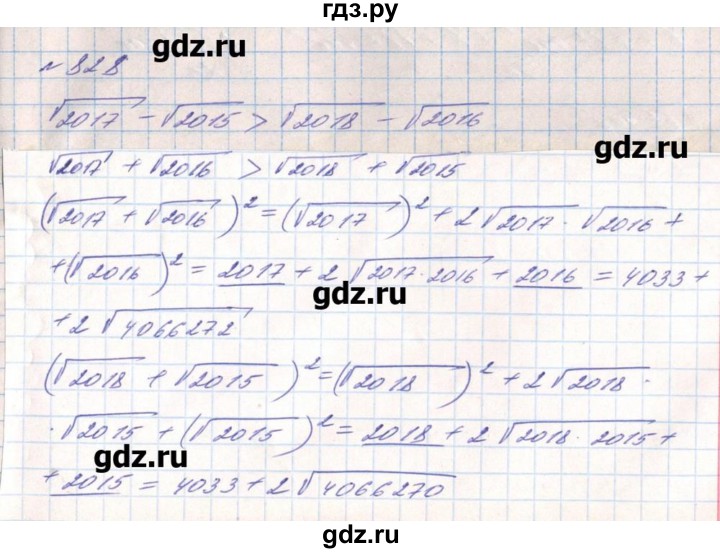 гдз.ру
gdz.ru
№ 828
√2017 - √2015 > √2018 - √2016
gdz.ru
√2017 + √2016 > √2018 + √2015
gdz.ru
(√2017 + √2016)² = (√2017)² + 2√2017 · √2016 +
+ (√2016)² = 2017 + 2√2017·2016 + 2016 = 4033 +
gdz.ru
+ 2√4066272
(√2018 + √2015)² = (√2018)² + 2√2018 ·
· √2015 + (√2015)² = 2018 + 2√2018·2015 +
gdz.ru
+ 2015 = 4033 + 2√4066270
gdz.ru